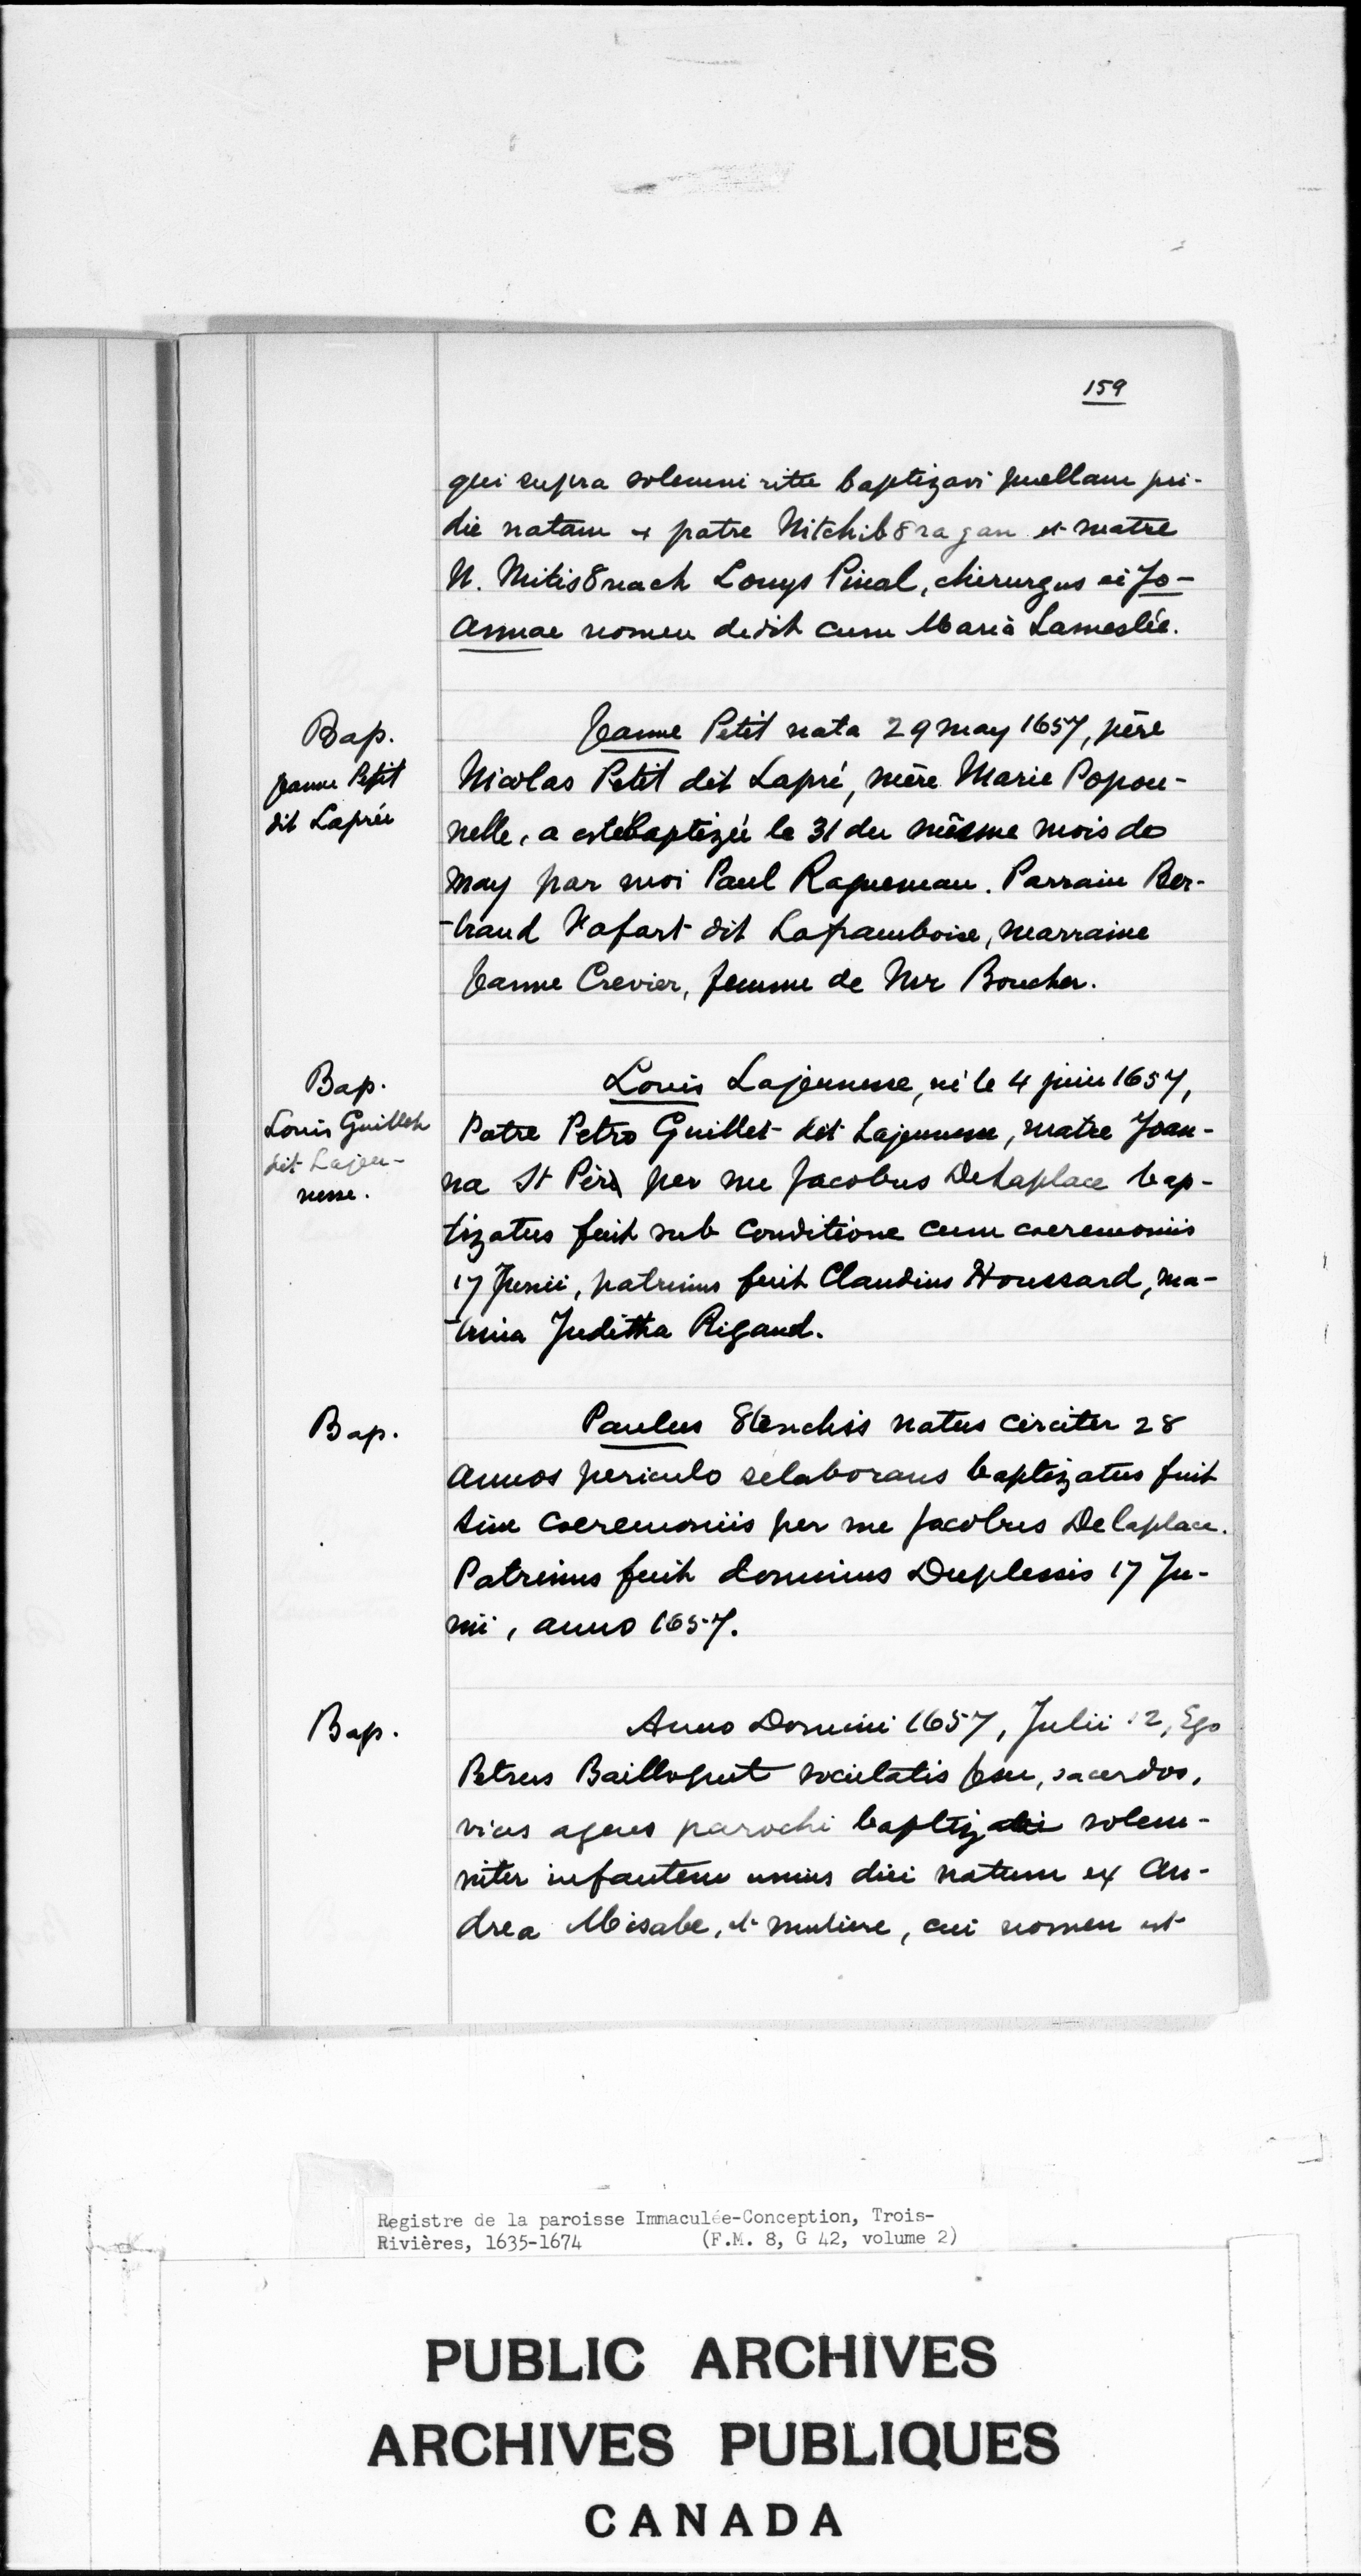 159
qui supra solemni ritu baptizavi puellam pri-
die natam ex patre Nitchib8ragan et matre
N. Mitis8nach Louys Pinal, chirurgus ei Jo-
annae nomen dedit cum Maria Lameslée.
Bap.
Jeanne Petit
dit Laprée
Jeanne Petit nata 29 may 1657, père
Nicolas Petit dit Lapré, mère Marie Popou-
nelle, a esté baptizée le 31 du mêsme mois de
may par moi Paul Ragueneau. Parrain Ber-
trand Fafart dit Laframboise, marraine
Jeanne Crevier, femme de Mr Boucher.
Bap.
Louis Guillet
dit Lajeu-
nesse.
Louis Lajeunesse, né le 4 juin 1657,
Patre Petro Guillet dit Lajeunesse, matre Joan-
na St Père per me Jacobus Delaplace bap-
tizatus fuit sub conditione cum caeremoniis
17 Junii, patrinus fuit Claudius Houssard, ma-
trina Juditha Rigaud.
Bap.
Paulus natus circiter 28
annos periculo selaborans baptizatus fuit
sine caeremoniis per me Jacobus Delaplace.
Patrinus fuit dominus Duplessis 17 Ju-
nii, anno 1657.
Bap.
Anno Domini 1657, Julii 12, Ego
Petrus Bailloquet societatis Jesu, sacerdos,
vices agens parochi baptizavi solem-
niter infantem unius diei natum ex An-
drea Misabe, et muliere, cui nomen est
Registre de la paroisse Immaculée-Conception, Trois-
Rivières, 1635-1674 (F.M. 8, G 42, volume 2)
PUBLIC ARCHIVES
ARCHIVES PUBLIQUES
CANADA